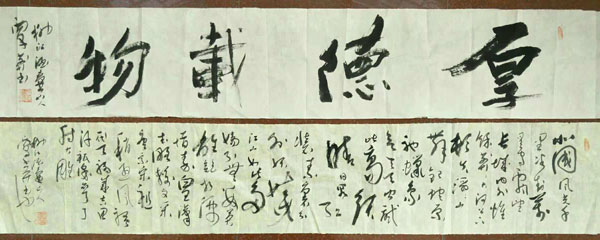 厚德載物
北國風光千
里冰封萬
里雪飄望
長城內外惟
餘莽莽大河上下
頓失滔滔山
舞銀蛇原
馳蠟象
欲與天公試
比高須
晴日看紅
裝素裹
分外妖嬈
江山如此多
嬌引無數英
雄競折腰
惜秦皇漢
武略輸文采
唐宗宋祖
稍遜風騷
一代天驕成吉思
汗只識彎弓
射大雕